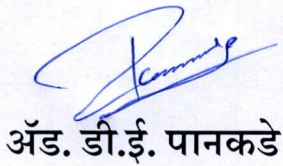 ॲड. डी.ई. पानकडे